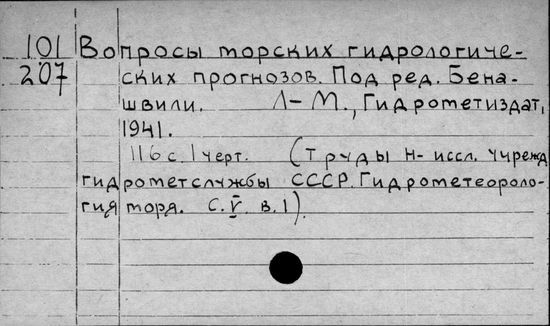 101 Вопросы морских гидрологиче-
207 ских прогнозов. Под ред. Бена-
швили. Л-М., Гидрометиздат,
1941.
116 с. 1 черт. (Труды н-иссл. учрежд
гидрометслужбы СССР. Гидрометеороло-
гия моря. с. V. в. 1).